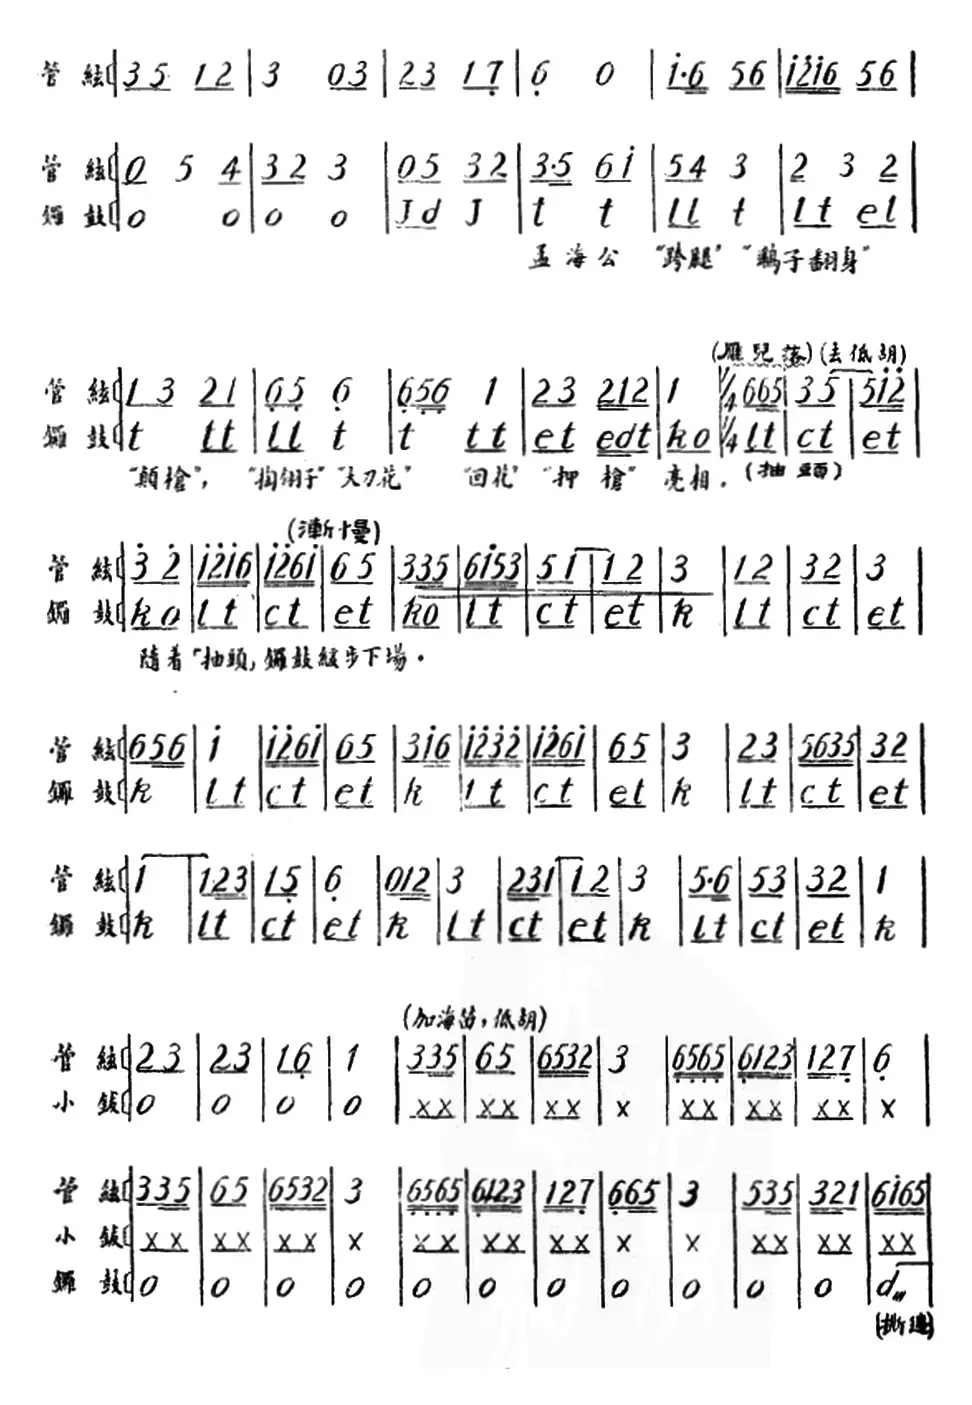 管 絃 3 5 1 2 | 3 0 3 | 2 3 1 7 | 6 0 | i·6 5 6 | i2i6 5 6 |
管 絃 0 5 4 | 3 2 3 | 0 5 3 2 | 3·5 6 i | 5 4 3 | 2 3 2 |
鑼 鼓 0 0 0 | 0 0 | J d J | t t | l l t | l t e l |
孟 海 公 "跨腿" "鷂子翻身"
(雁兒落) (去低胡)
管 絃 1 3 2 1 | 6 5 6 | 6 5 6 1 | 2 3 2 1 2 | 1 | 1/4 6 6 5 | 3 5 | 5 i 2 |
鑼 鼓 t l t | l l t | t t t | e t e d t | k o | 1/4 l t | c t | e t |
"顛槍", "掏翎子" "大刀花" "回花" "押 槍" 亮相. (抽 頭)
(漸慢)
管 絃 3 2 | i2i6 | i26i | 6 5 | 3 3 5 | 6i53 | 5 1 | 1 2 | 3 | 1 2 | 3 2 | 3 |
鑼 鼓 k o | l t | c t | e t | k o | l t | c t | e t | k | l t | c t | e t |
隨着「抽頭」鑼鼓緩步下場.
管 絃 6 5 6 | i | i26i | 6 5 | 3 i 6 | i232 | i26i | 6 5 | 3 | 2 3 | 5635 | 3 2 |
鑼 鼓 k | l t | c t | e t | k | l t | c t | e t | k | l t | c t | e t |
管 絃 1 | 1 2 3 | 1 5 | 6 | 0 1 2 | 3 | 2 3 1 | 1 2 | 3 | 5·6 | 5 3 | 3 2 | 1
鑼 鼓 k | l t | c t | e t | k | l t | c t | e t | k | l t | c t | e t | k
(加海笛,低胡)
管 絃 2 3 | 2 3 | 1 6 | 1 | 3 3 5 | 6 5 | 6532 | 3 | 6565 | 6123 | 1 2 7 | 6 |
小 鈸 0 | 0 | 0 | 0 | X X | X X | X X | X | X X | X X | X X | X |
管 絃 3 3 5 | 6 5 | 6532 | 3 | 6565 | 6123 | 1 2 7 | 6 6 5 | 3 | 5 3 5 | 3 2 1 | 6i65 |
小 鈸 X X | X X | X X | X | X X | X X | X X | X | X | X X | X X | X X |
鑼 鼓 0 | 0 | 0 | 0 | 0 | 0 | 0 | 0 | 0 | 0 | 0 | d |
(撕邊)